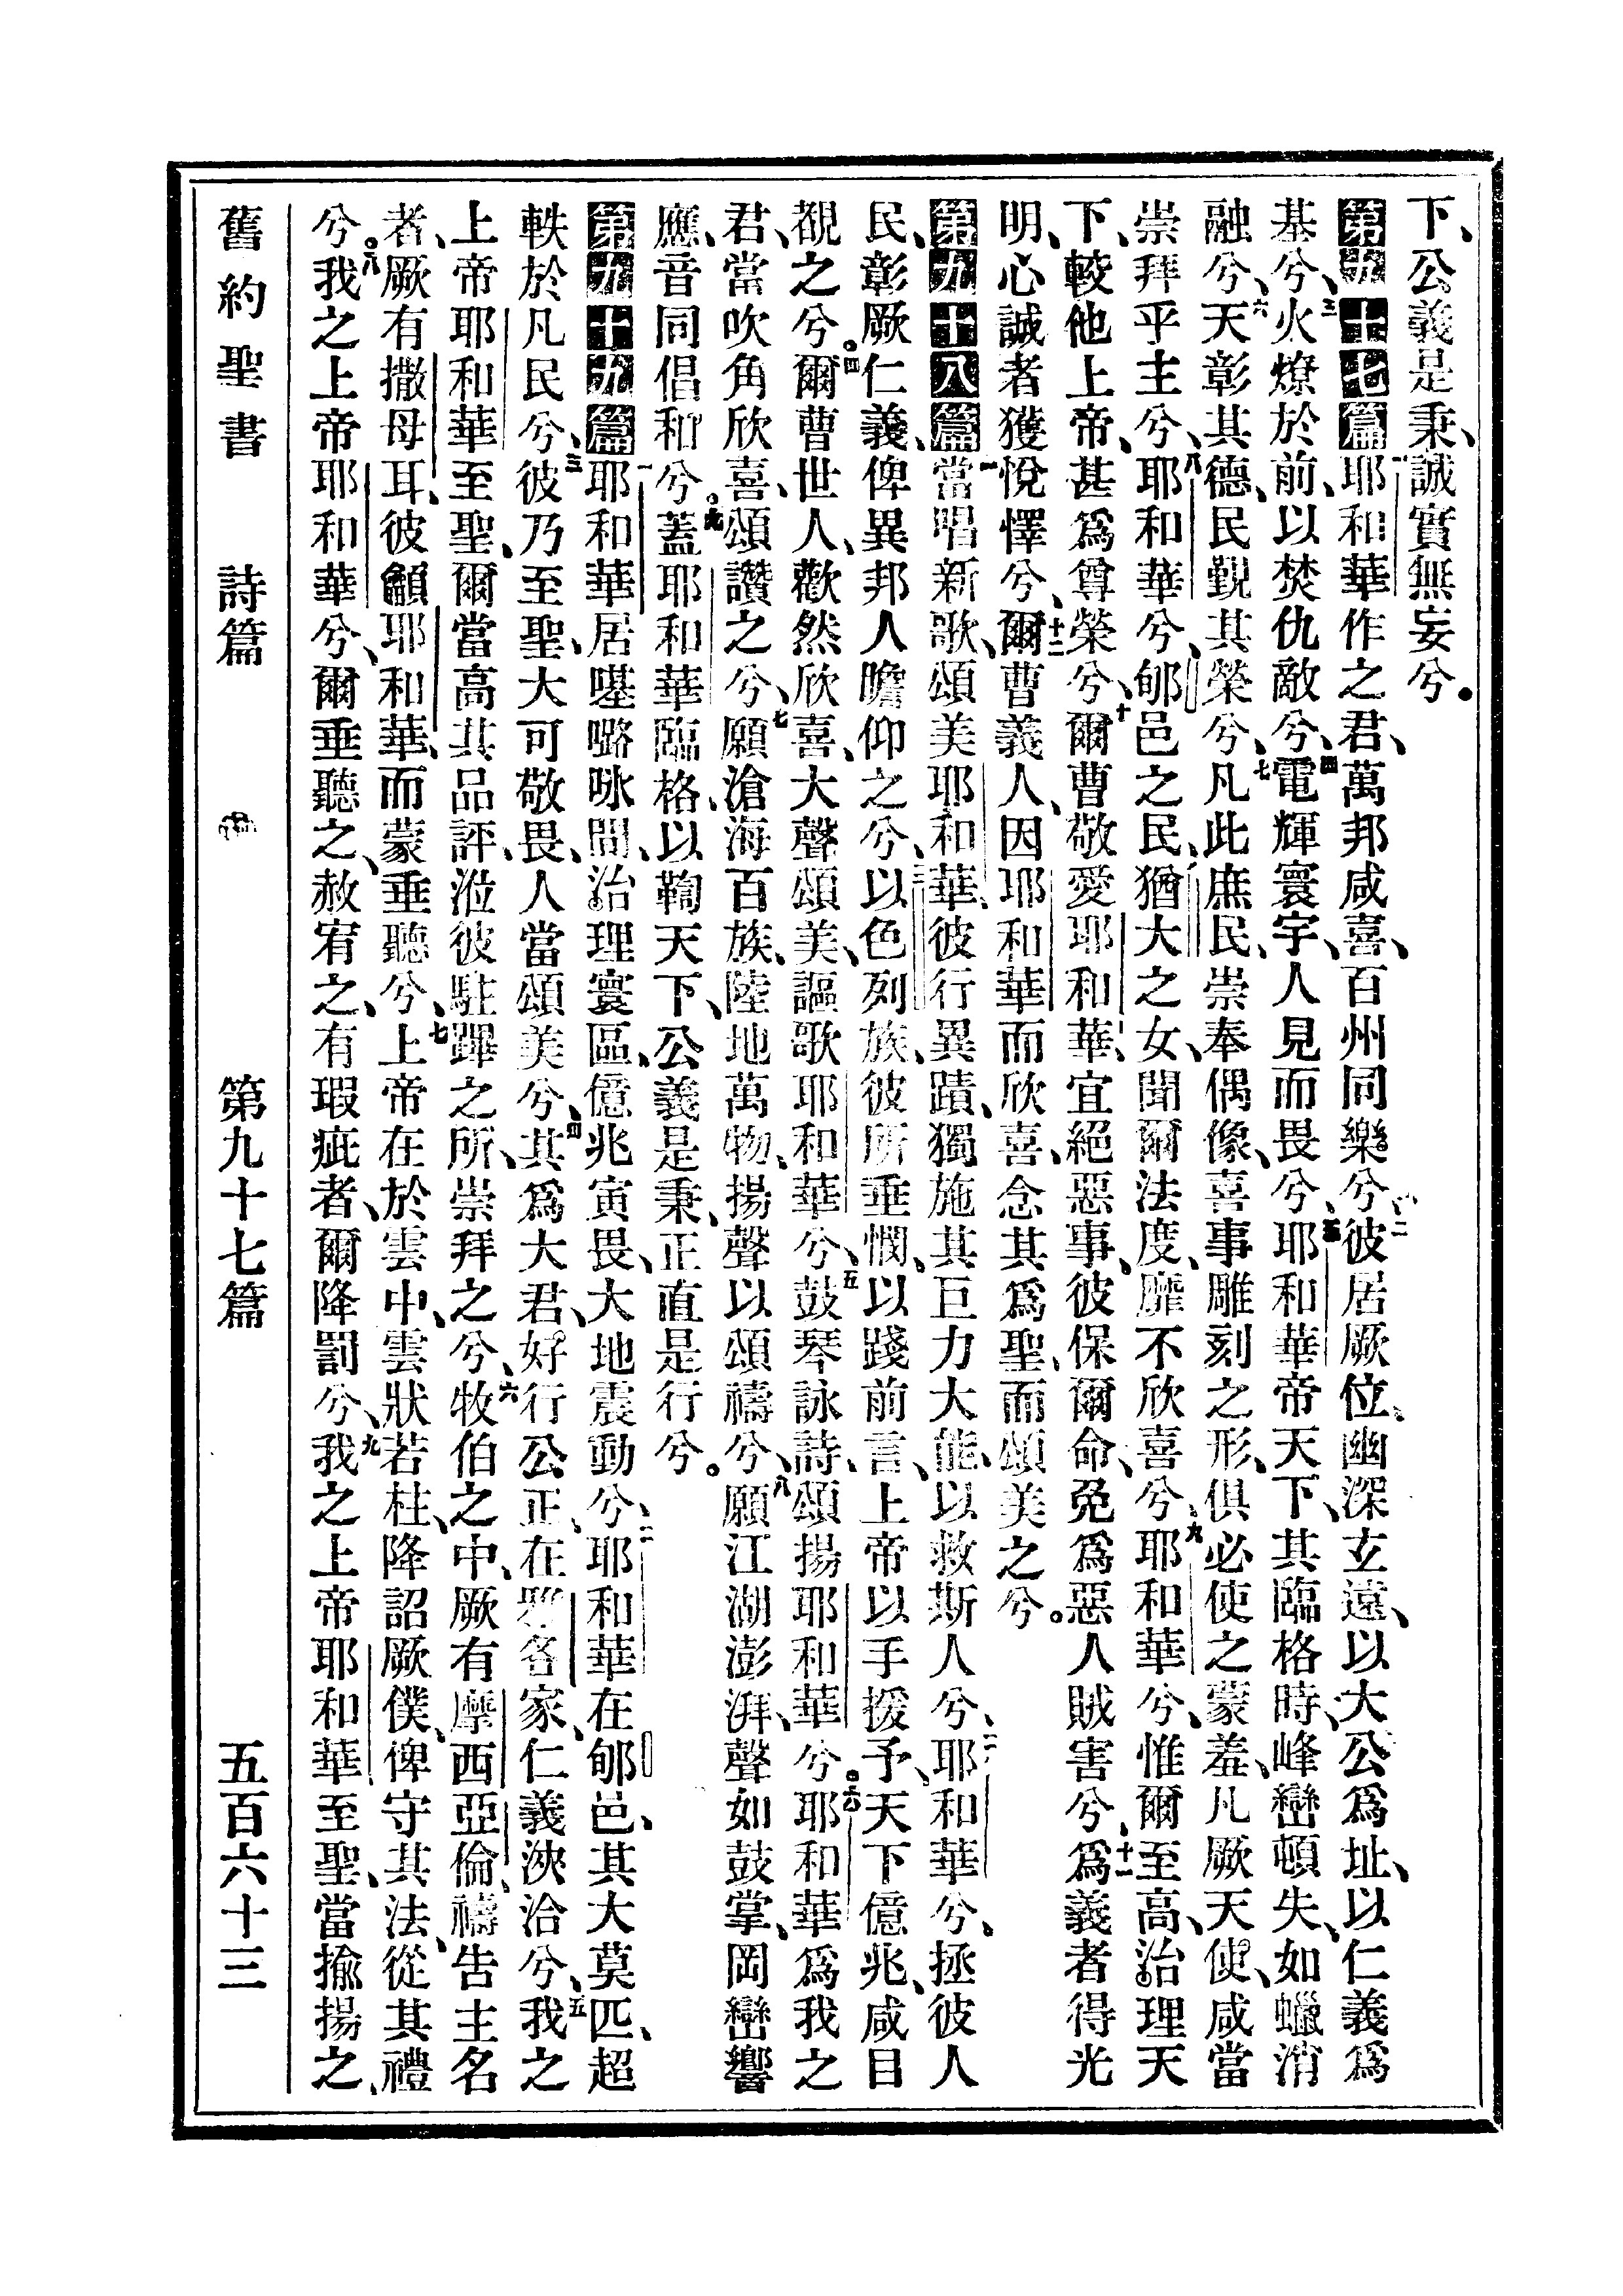 下、公義是秉、誠實無妄兮。
第九十七篇一耶和華作之君、萬邦咸喜、百州同樂兮、二彼居厥位、幽深玄遠、以大公爲址、以仁義爲
基兮、三火燎於前、以焚仇敵兮、四電輝寰宇、人見而畏兮、五耶和華帝天下、其臨格時、峰巒頓失、如蠟消
融兮、六天彰其德、民覲其榮兮、七凡此庶民、崇奉偶像、喜事雕刻之形、俱必使之蒙羞、凡厥天使、咸當
崇拜乎主兮、八耶和華兮、郇邑之民、猶大之女、聞爾法度、靡不欣喜兮、九耶和華兮、惟爾至高、治理天
下、較他上帝、甚爲尊榮兮、十爾曹敬愛耶和華、宜絕惡事、彼保爾命、免爲惡人賊害兮、十一爲義者得光
明、心誠者獲悅懌兮、十二爾曹義人、因耶和華而欣喜、念其爲聖、而頌美之兮。
第九十八篇一當唱新歌、頌美耶和華、彼行異蹟、獨施其巨力大能、以救斯人兮、二耶和華兮、拯彼人
民、彰厥仁義、俾異邦人瞻仰之兮、三以色列族、彼所垂憫、以踐前言、上帝以手援予、天下億兆、咸目
覩之兮。四爾曹世人、歡然欣喜、大聲頌美、謳歌耶和華兮、五鼓琴詠詩、頌揚耶和華兮。六耶和華爲我之
君、當吹角欣喜、頌讚之兮、七願滄海百族、陸地萬物、揚聲以頌禱兮、八願江湖澎湃、聲如鼓掌、岡巒響
應、音同倡和兮。九蓋耶和華臨格、以鞫天下、公義是秉、正直是行兮。
第九十九篇一耶和華居𠼻嚧咏間、治理寰區、億兆寅畏、大地震動兮、二耶和華在郇邑、其大莫匹、超
軼於凡民兮、三彼乃至聖、大可敬畏、人當頌美兮、四其爲大君、好行公正、在雅各家、仁義浹洽兮、五我之
上帝耶和華至聖、爾當高其品評、涖彼駐蹕之所、崇拜之兮、六牧伯之中、厥有摩西亞倫、禱告主名
者、厥有撒母耳、彼龥耶和華、而蒙垂聽兮、七上帝在於雲中、雲狀若柱、降詔厥僕、俾守其法、從其禮
兮。八我之上帝耶和華兮、爾垂聽之、赦宥之、有瑕疵者、爾降罰兮、九我之上帝耶和華至聖、當揄揚之、
舊約聖書 詩篇 第九十七篇 五百六十三